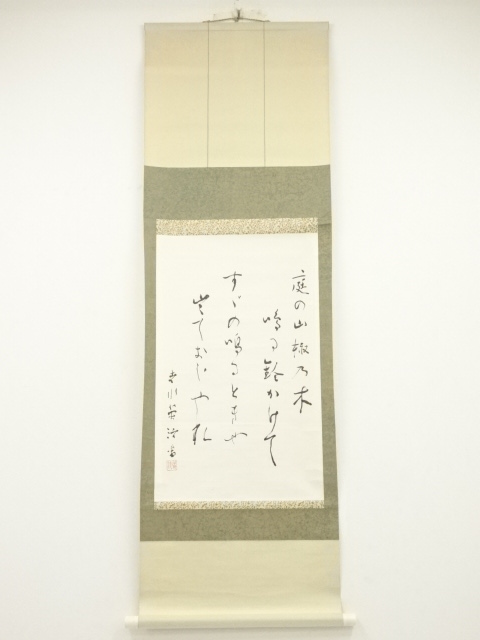 庭の山椒乃木
鳴る鈴かけて
すゞの鳴るときや
出ておじやれ